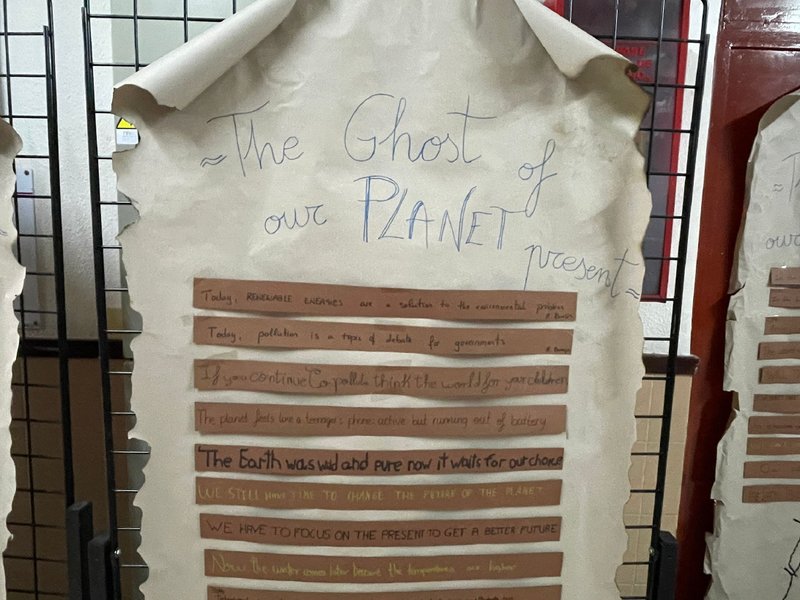 ≈The Ghost of
our PLANET present≈
Today, RENEWABLE ENERGIES are a solution to the environmental problem
Today, pollution is a topic of debate for governments
If you continue to pollute think the world for your children
The planet feels like a teenager's phone: active but running out of battery
The Earth was wild and pure now it waits for our choice
WE STILL HAVE TIME TO CHANGE THE FUTURE OF THE PLANET
WE HAVE TO FOCUS ON THE PRESENT TO GET A BETTER FUTURE
Now the winter comes later because the temperatures are higher
our